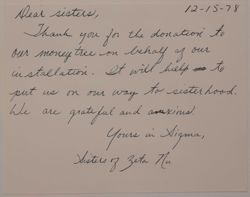 12-15-78
Dear sisters,
Thank you for the donation to
our moneytree on behalf of our
installation. It will help to
put us on our way to sisterhood.
We are grateful and anxious.
Yours in Sigma,
Sisters of Zeta Nu